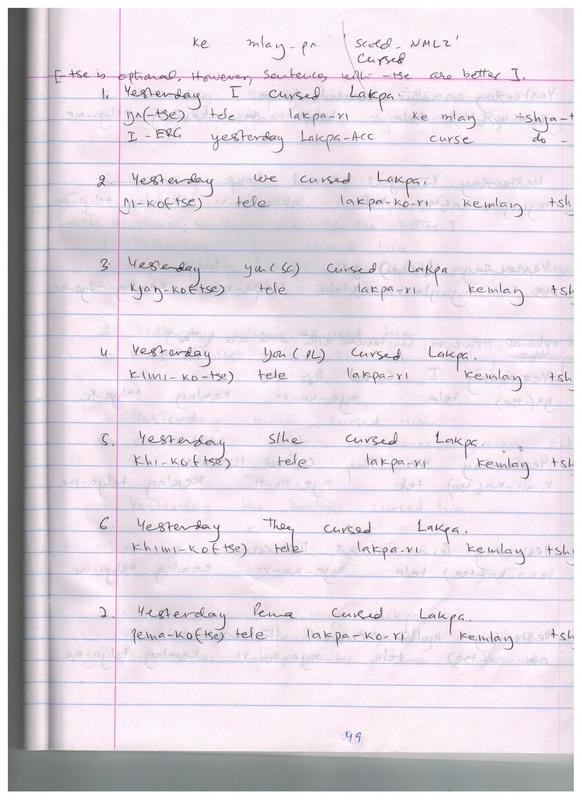 ke mlay-pʌ 'scold-NMLZ'
cursed
[-tse is optional. However, sentences with -tse are better].
1. Yesterday I cursed Lakpa.
ŋʌ(-tse) tele lakpa-ri ke mlay tshja-t
I-ERG yesterday Lakpa-ACC curse do-
2. Yesterday we cursed Lakpa.
ɲi-ko(-tse) tele lakpa-ko-ri kemlay tsh
3. Yesterday you(SG) cursed Lakpa
kjaŋ-ko(-tse) tele lakpa-ri kemlay tsh
4. Yesterday you(PL) cursed Lakpa.
kimi-ko-tse) tele lakpa-ri kemlay tsh
5. Yesterday s/he cursed Lakpa.
khi-ko(-tse) tele lakpa-ri kemlay tsh
6. Yesterday they cursed Lakpa.
khimi-ko(-tse) tele lakpa-ri kemlay tsh
7. Yesterday Pema cursed Lakpa.
pema-ko(-tse) tele lakpa-ko-ri kemlay tsh
49